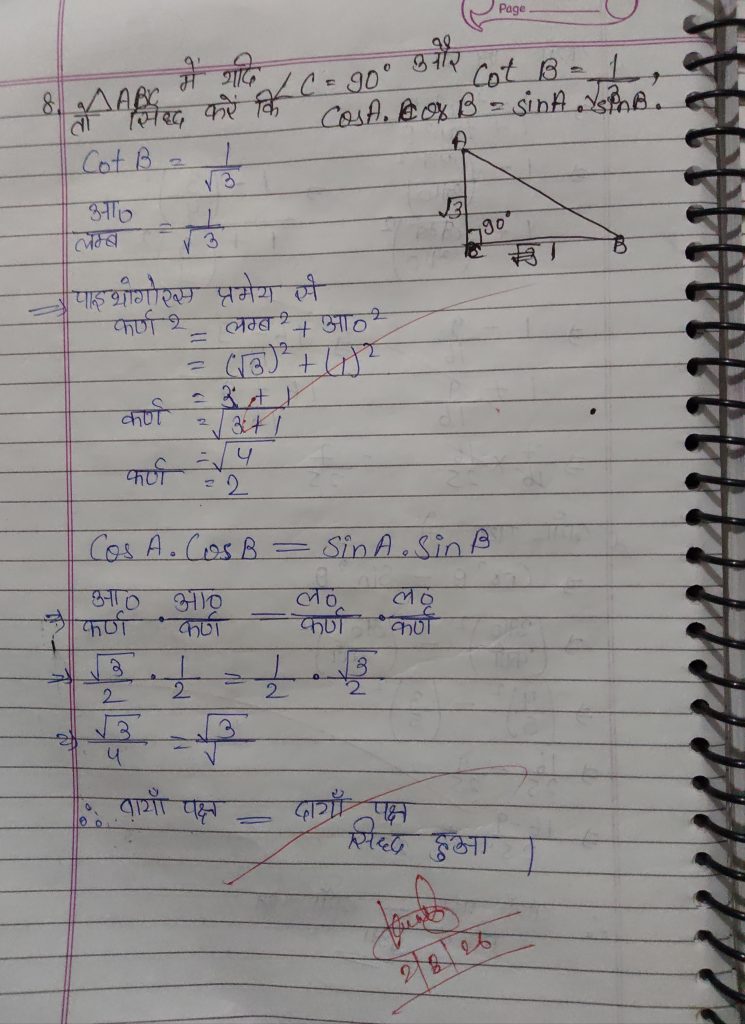 Page
8. △ABC में यदि ∠C = 90° और Cot B = 1/√3,
तो सिद्ध करें कि CosA. Cos B = sinA. sinB.
Cot B = 1/√3
आ०/लम्ब = 1/√3
A
√3
90°
C
1
B
⇒ पाइथागोरस प्रमेय से
कर्ण² = लम्ब² + आ०²
= (√3)² + (1)²
= 3 + 1
कर्ण = √3+1
= √4
कर्ण = 2
Cos A. Cos B = Sin A. Sin B
⇒ आ०/कर्ण . आ०/कर्ण = ल०/कर्ण . ल०/कर्ण
⇒ √3/2 . 1/2 = 1/2 . √3/2
⇒ √3/4 = √3/√
∴ बायाँ पक्ष = दायाँ पक्ष
सिध्द हुआ |
2/8/26